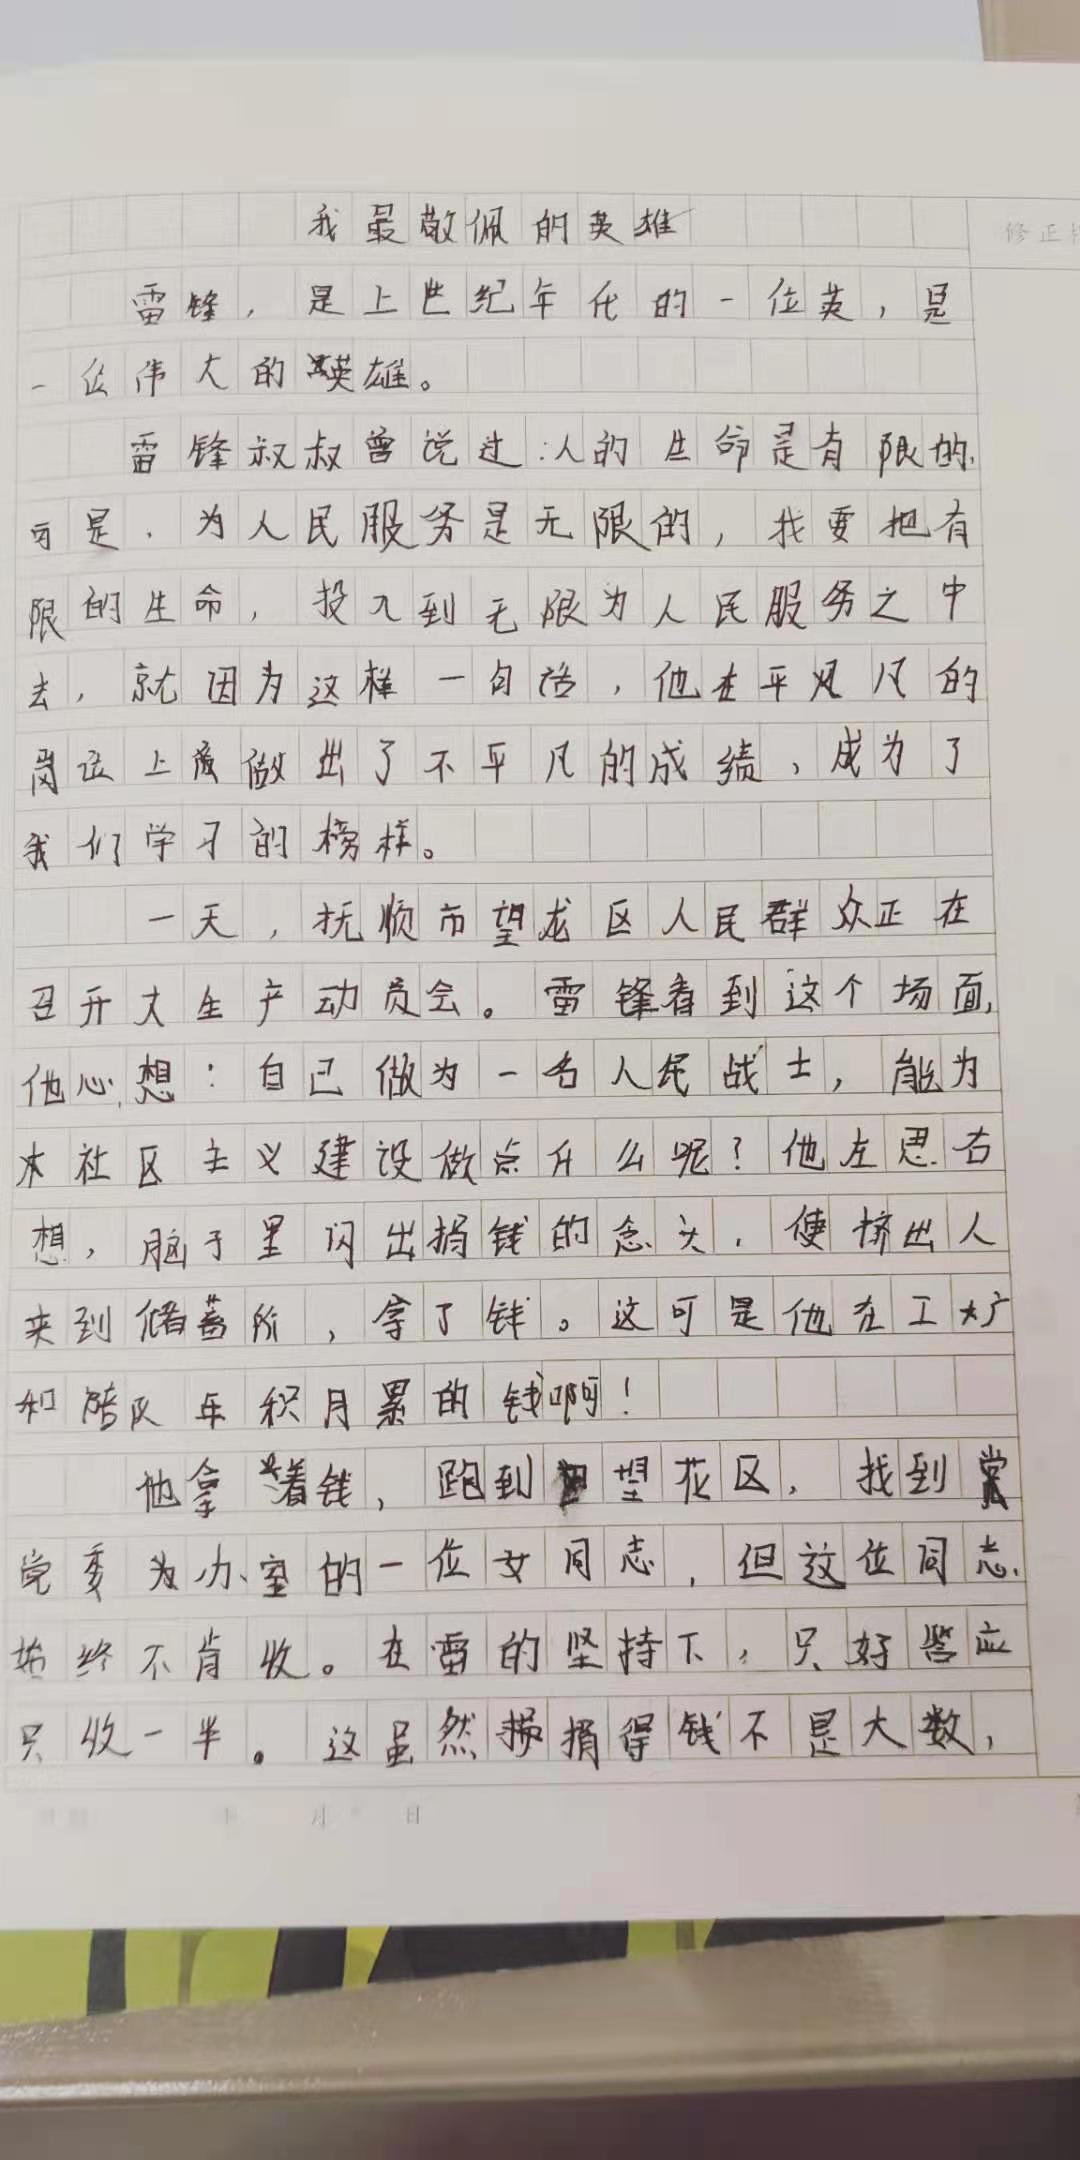 我最敬佩的英雄
修正
雷锋，是上世纪年代的一位英，是
一位伟大的英雄。
雷锋叔叔曾说过：人的生命是有限的，
可是，为人民服务是无限的，我要把有
限的生命，投入到无限为人民服务之中
去，就因为这样一句话，他在平凡的
岗位上做出了不平凡的成绩，成为了
我们学习的榜样。
一天，抚顺市望龙区人民群众正在
召开大生产动员会。雷锋看到这个场面，
他心想：自己做为一名人民战士，能为
社区主义建设做点什么呢？他左思右
想，脑子里闪出捐钱的念头，便挤出人
来到储蓄所，拿了钱。这可是他在工厂
和部队年积月累的钱啊！
他拿着钱，跑到望花区，找到
党委为办室的一位女同志，但这位同志
始终不肯收。在雷的坚持下，只好答应
只收一半。这虽然捐得钱不是大数，
月 日